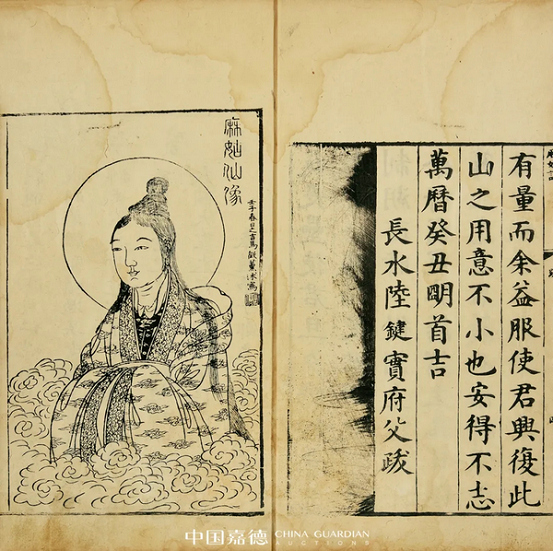 有量而余益服使君興復此
山之用意不小也安得不志
萬曆癸丑朙首吉
長水陸鍵實府父跋
麻姑仙像
中国嘉德 CHINA GUARDIAN
AUCTIONS